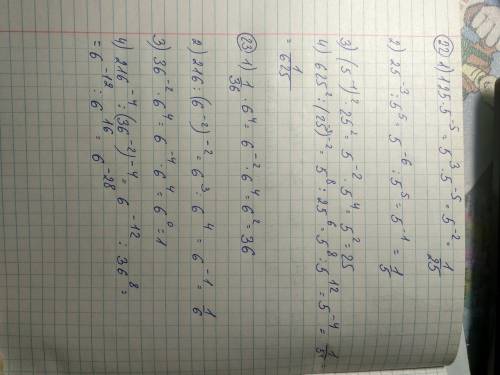 22 1) 125·5⁻⁵ = 5³·5⁻⁵ = 5⁻² = 1/25
2) 25⁻³·5⁵ = 5⁻⁶·5⁵ = 5⁻¹ = 1/5
3) (5⁻¹)²·25² = 5⁻²·5⁴ = 5² = 25
4) 625² : (25⁻³)⁻² = 5⁸ : 25⁶ = 5⁸ : 5¹² = 5⁻⁴ =
= 1/625
23 1) 1/36 · 6⁴ = 6⁻²·6⁴ = 6² = 36
2) 216 : (6⁻²)⁻² = 6³ : 6⁴ = 6⁻¹ = 1/6
3) 36⁻²·6⁴ = 6⁻⁴·6⁴ = 6⁰ = 1
4) 216⁻⁴ : (36⁻²)⁻⁴ = 6⁻¹² : 36⁸ =
= 6⁻¹² : 6¹⁶ = 6⁻²⁸